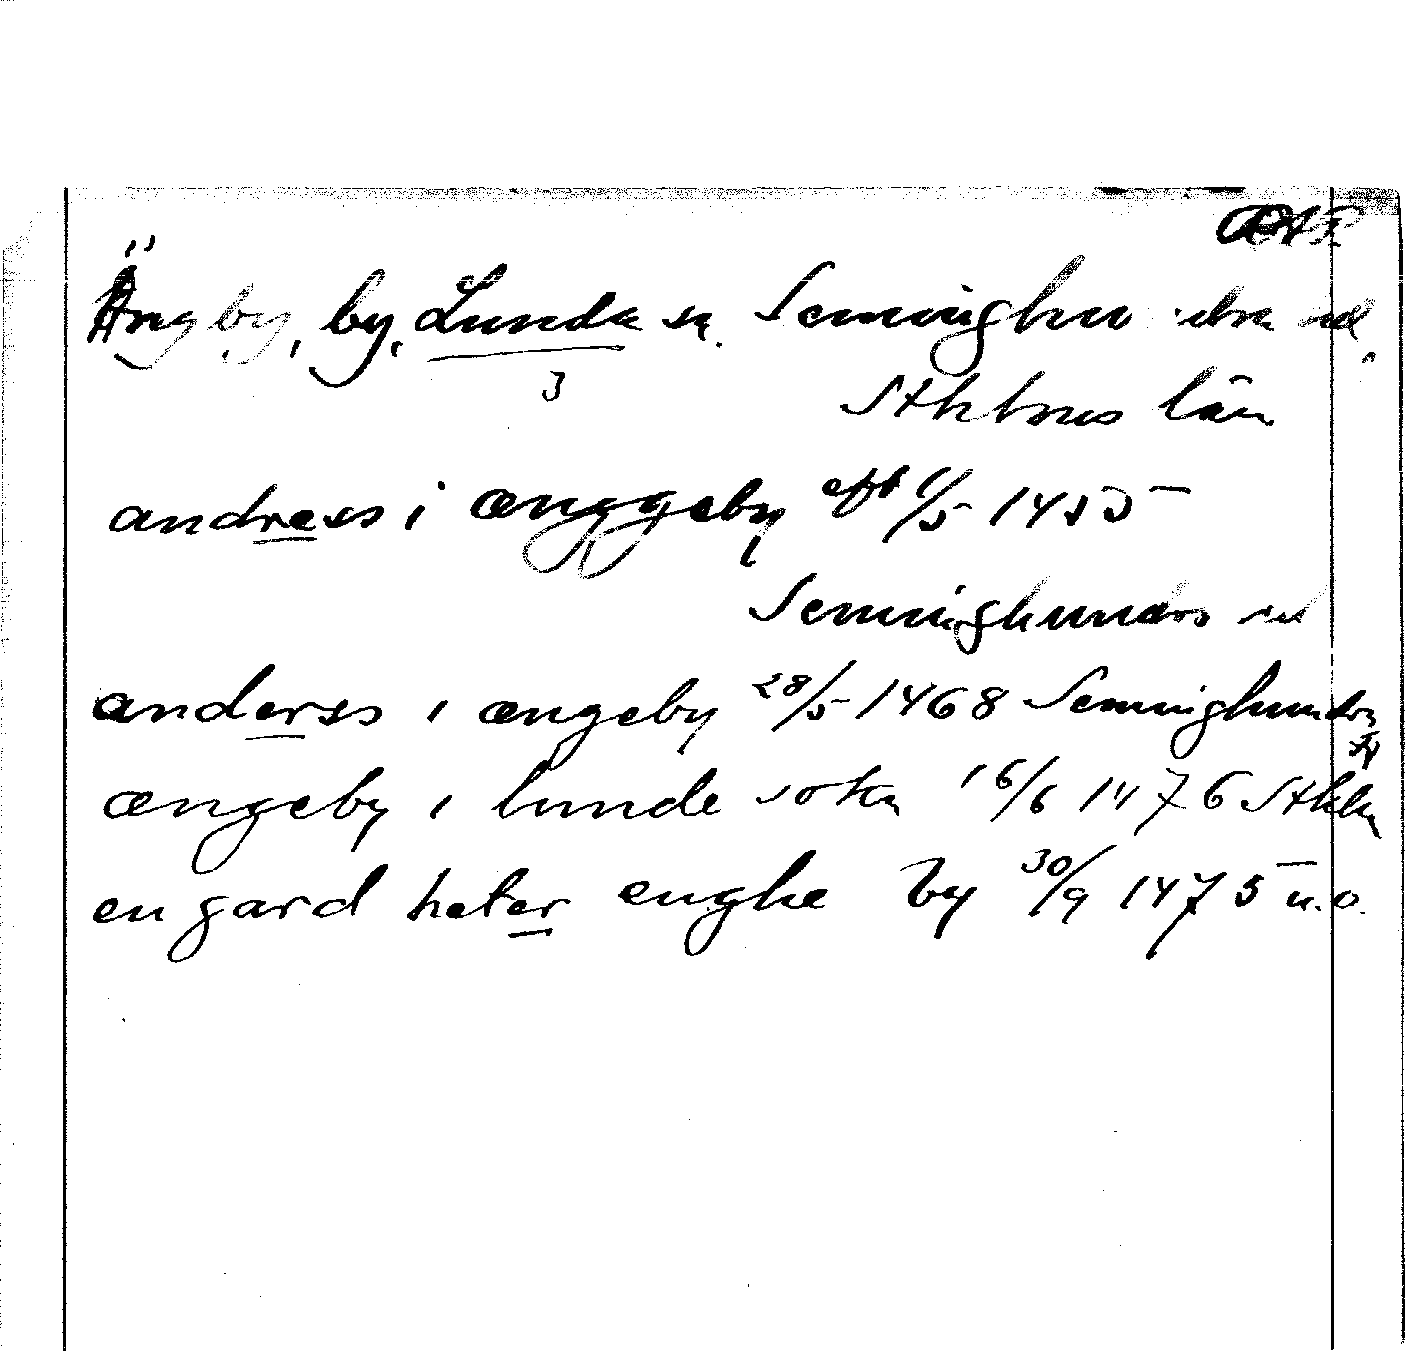 Ängby, by, Lunda sn. Seminghu
3
Sthlms län
andress i ænggeby eft 1/5 1455
Seminghundra
anderss i ængeby 28/5 1468 Seminghundra
ængeby i lunde sokn 16/6 1476 Sthlm
en gard heter enghe by 30/9 1475 u.o.